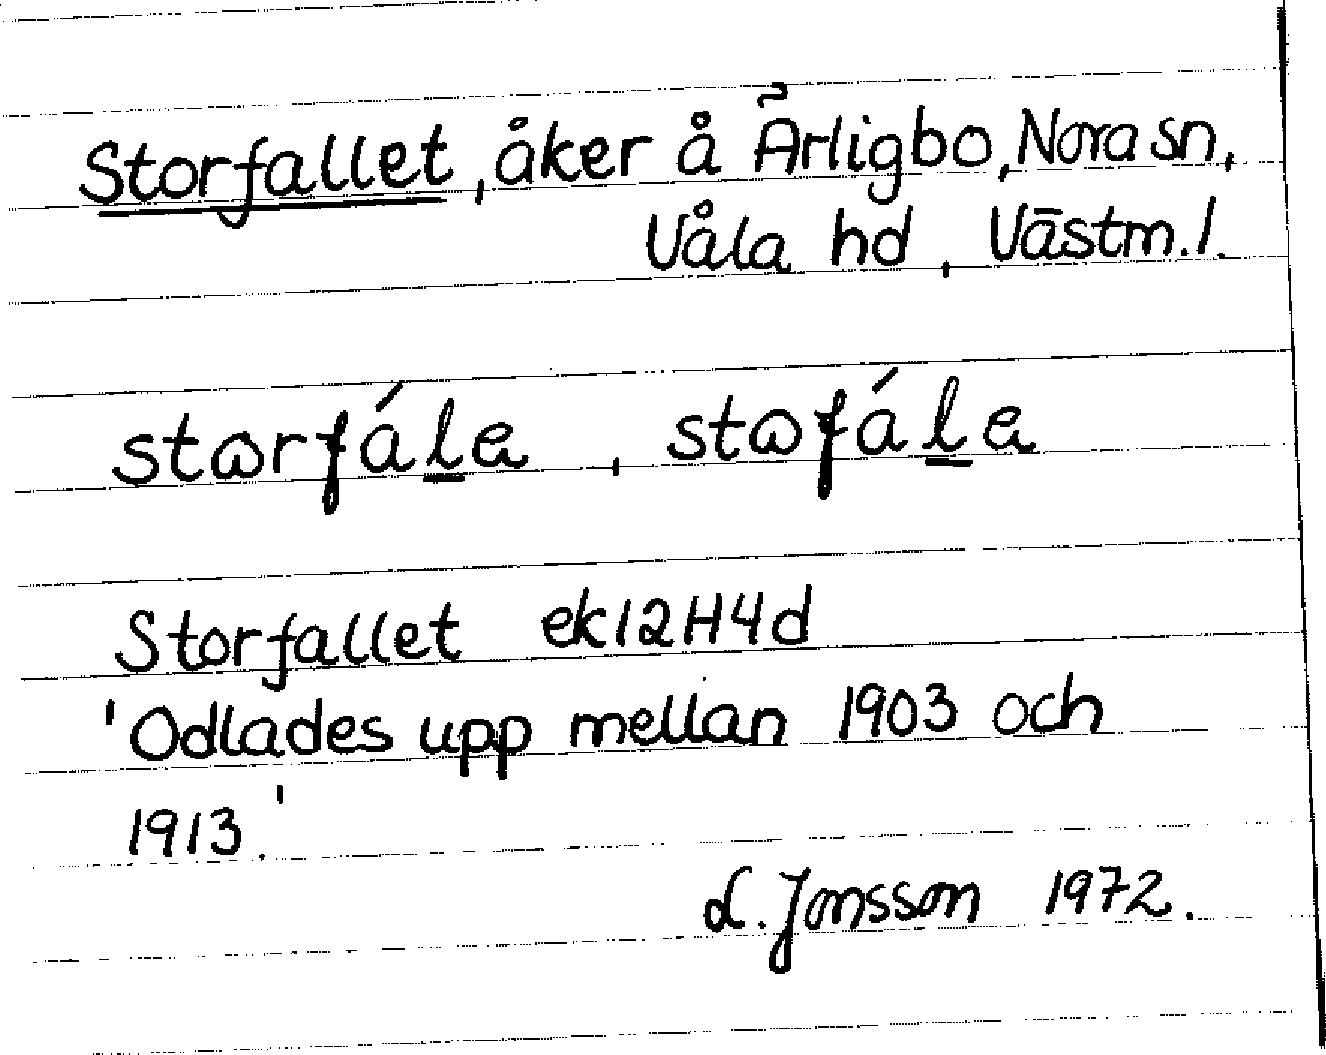 Storfallet, åker å Ärligbo, Nora sn,
Våla hd, Västm. l.
storfála, stofála
Storfallet ek12H4d
'Odlades upp mellan 1903 och
1913.'
L. Jonsson 1972.